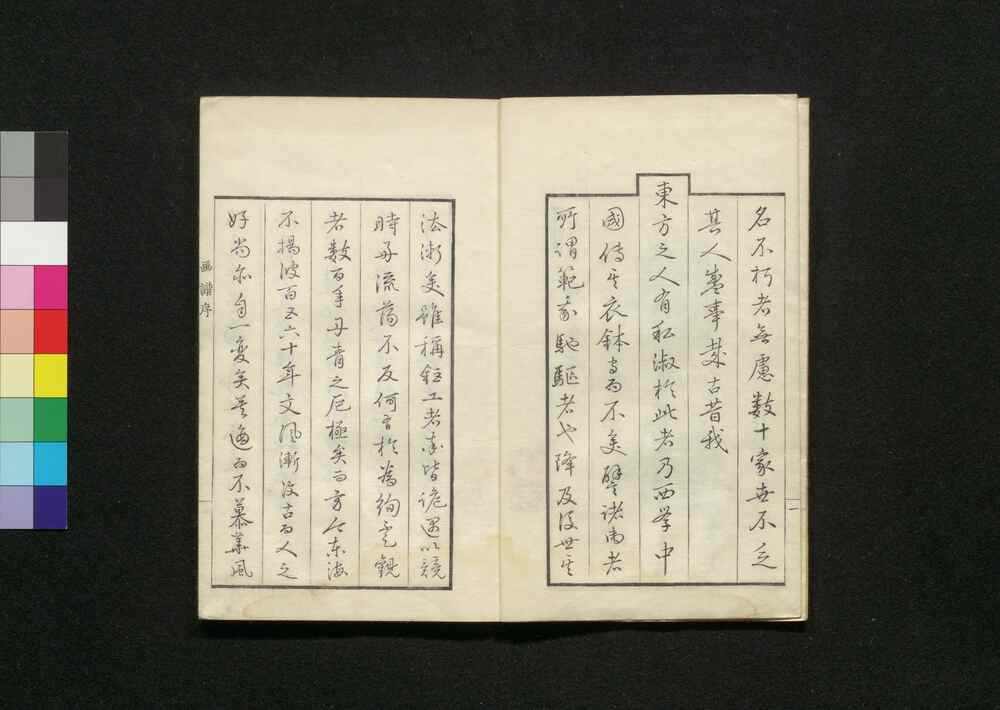 名不朽者無慮数十家世不乏
其人盛事哉古昔我
東方之人有私淑於此者乃西学中
國傳其衣鉢者而不失譬諸御者
所謂範我馳驅者也降及後世其
法漸失雖稱鉅工者率皆詭遇以競
時好流蕩不反何言於為絢是觀
者数百年丹青之厄極矣而方今東海
不揚波百又六十年文風漸復古而人之
好尚亦自一変矣莫適而不慕華風
画譜序
一